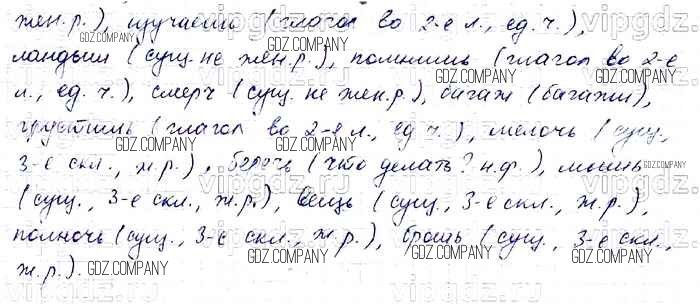 жен.р.), изучаешь (глагол во 2-е л., ед. ч.),
ландыш (сущ. не жен.р.), помнишь (глагол во 2-е
л., ед. ч.), смерч (сущ. не жен.р.), багаж (багажи),
грустишь (глагол во 2-е л., ед. ч.), мелочь (сущ.,
3-е скл., ж.р.), беречь (что делать? н.ф.), мышь
(сущ., 3-е скл., ж.р.), вещь (сущ., 3-е скл., ж.р.),
полночь (сущ., 3-е скл., ж.р.), брошь (сущ., 3-е скл.,
ж.р.).